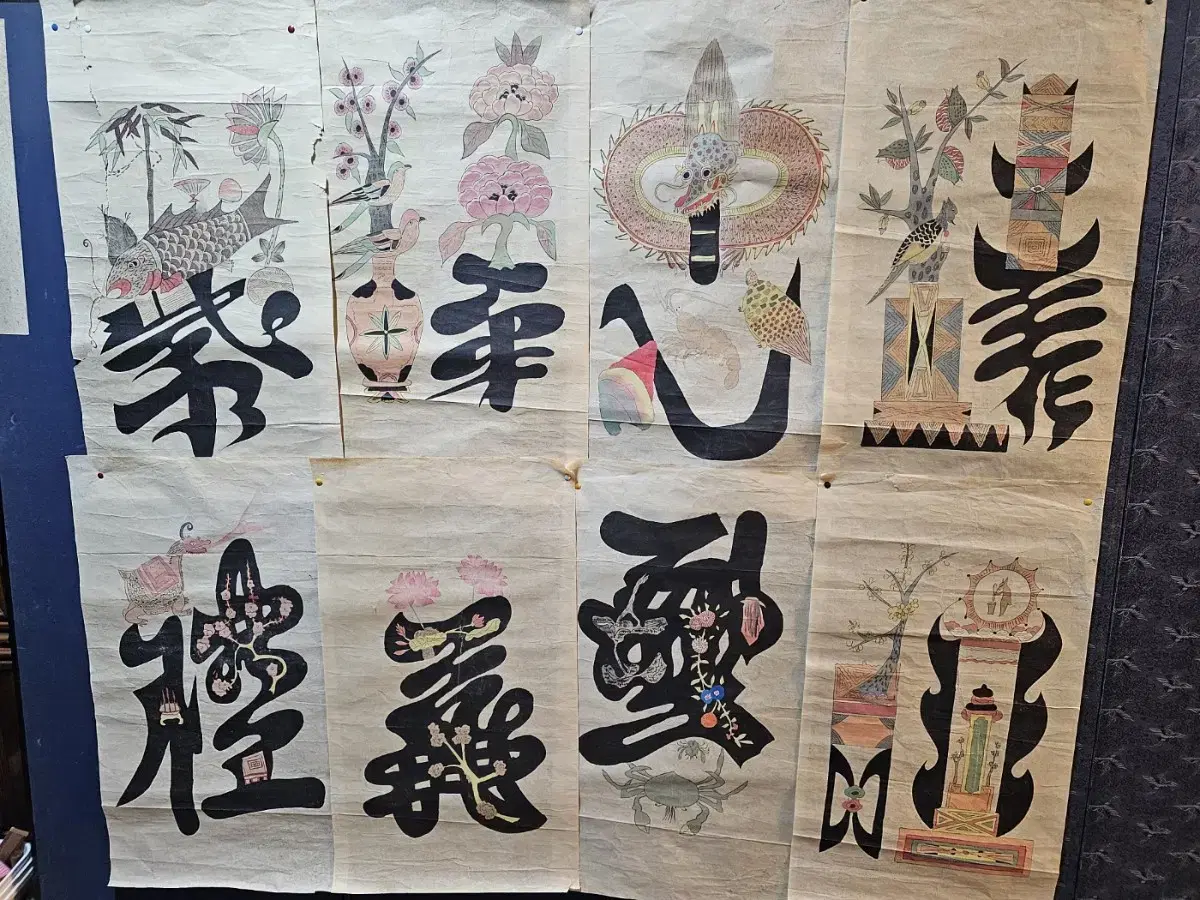 孝 悌 忠 信
禮 義 廉 恥